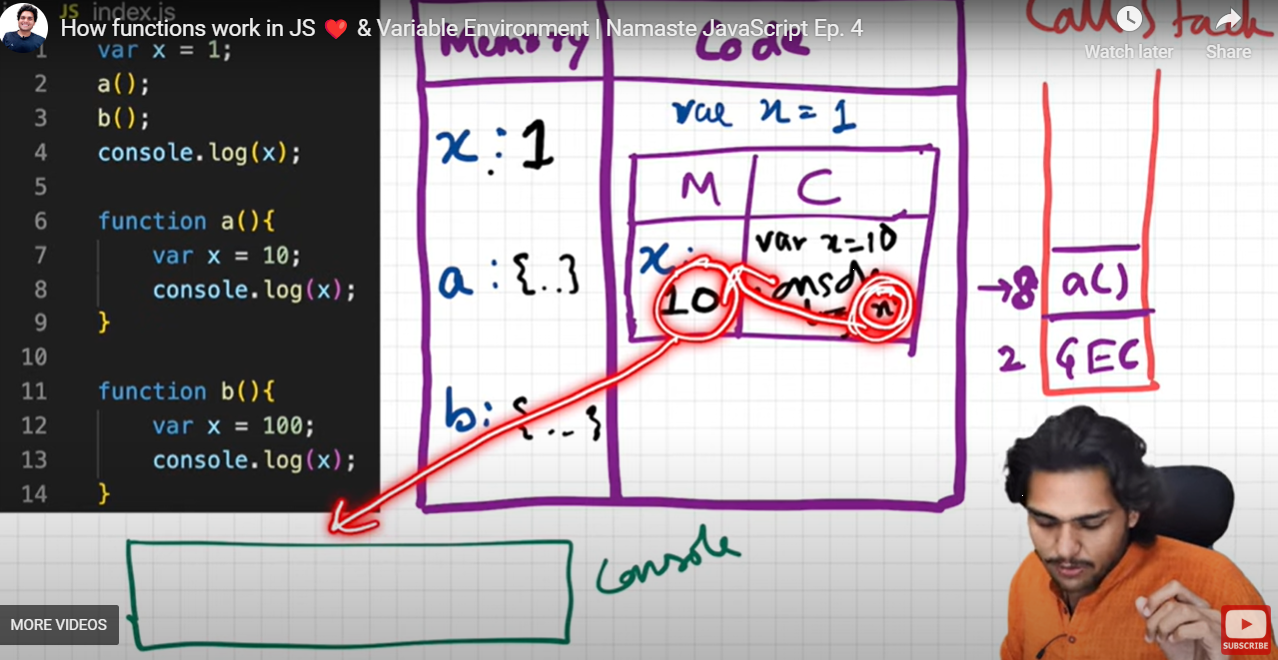 JS index.js
How functions work in JS ❤️ & Variable Environment | Namaste JavaScript Ep. 4
Watch later
Share
1 var x = 1;
2 a();
3 b();
4 console.log(x);
5
6 function a(){
7 var x = 10;
8 console.log(x);
9 }
10
11 function b(){
12 var x = 100;
13 console.log(x);
14 }
Memory
Code
x : 1
a : {..}
b : {...}
var x = 1
M
C
x :
10
var x=10
x
Call Stack
→ 8
a()
2
GEC
Console
MORE VIDEOS
SUBSCRIBE